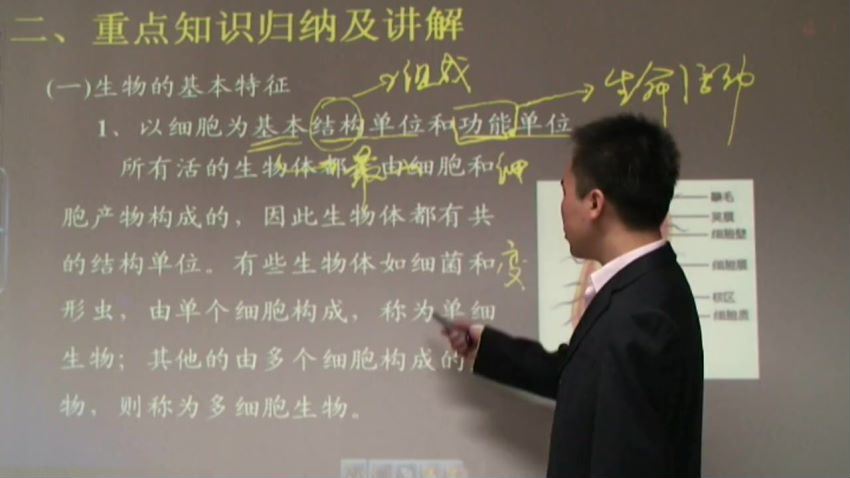 二、重点知识归纳及讲解
(一)生物的基本特征
组成
生命活动
1、以细胞为基本结构单位和功能单位
所有活的生物体都 由细胞和细
最
胞产物构成的，因此生物体都有共
的结构单位。有些生物体如细菌和变
形虫，由单个细胞构成，称为单细
生物；其他的由多个细胞构成的
物，则称为多细胞生物。
鞭毛
荚膜
细胞壁
细胞膜
核区
细胞质